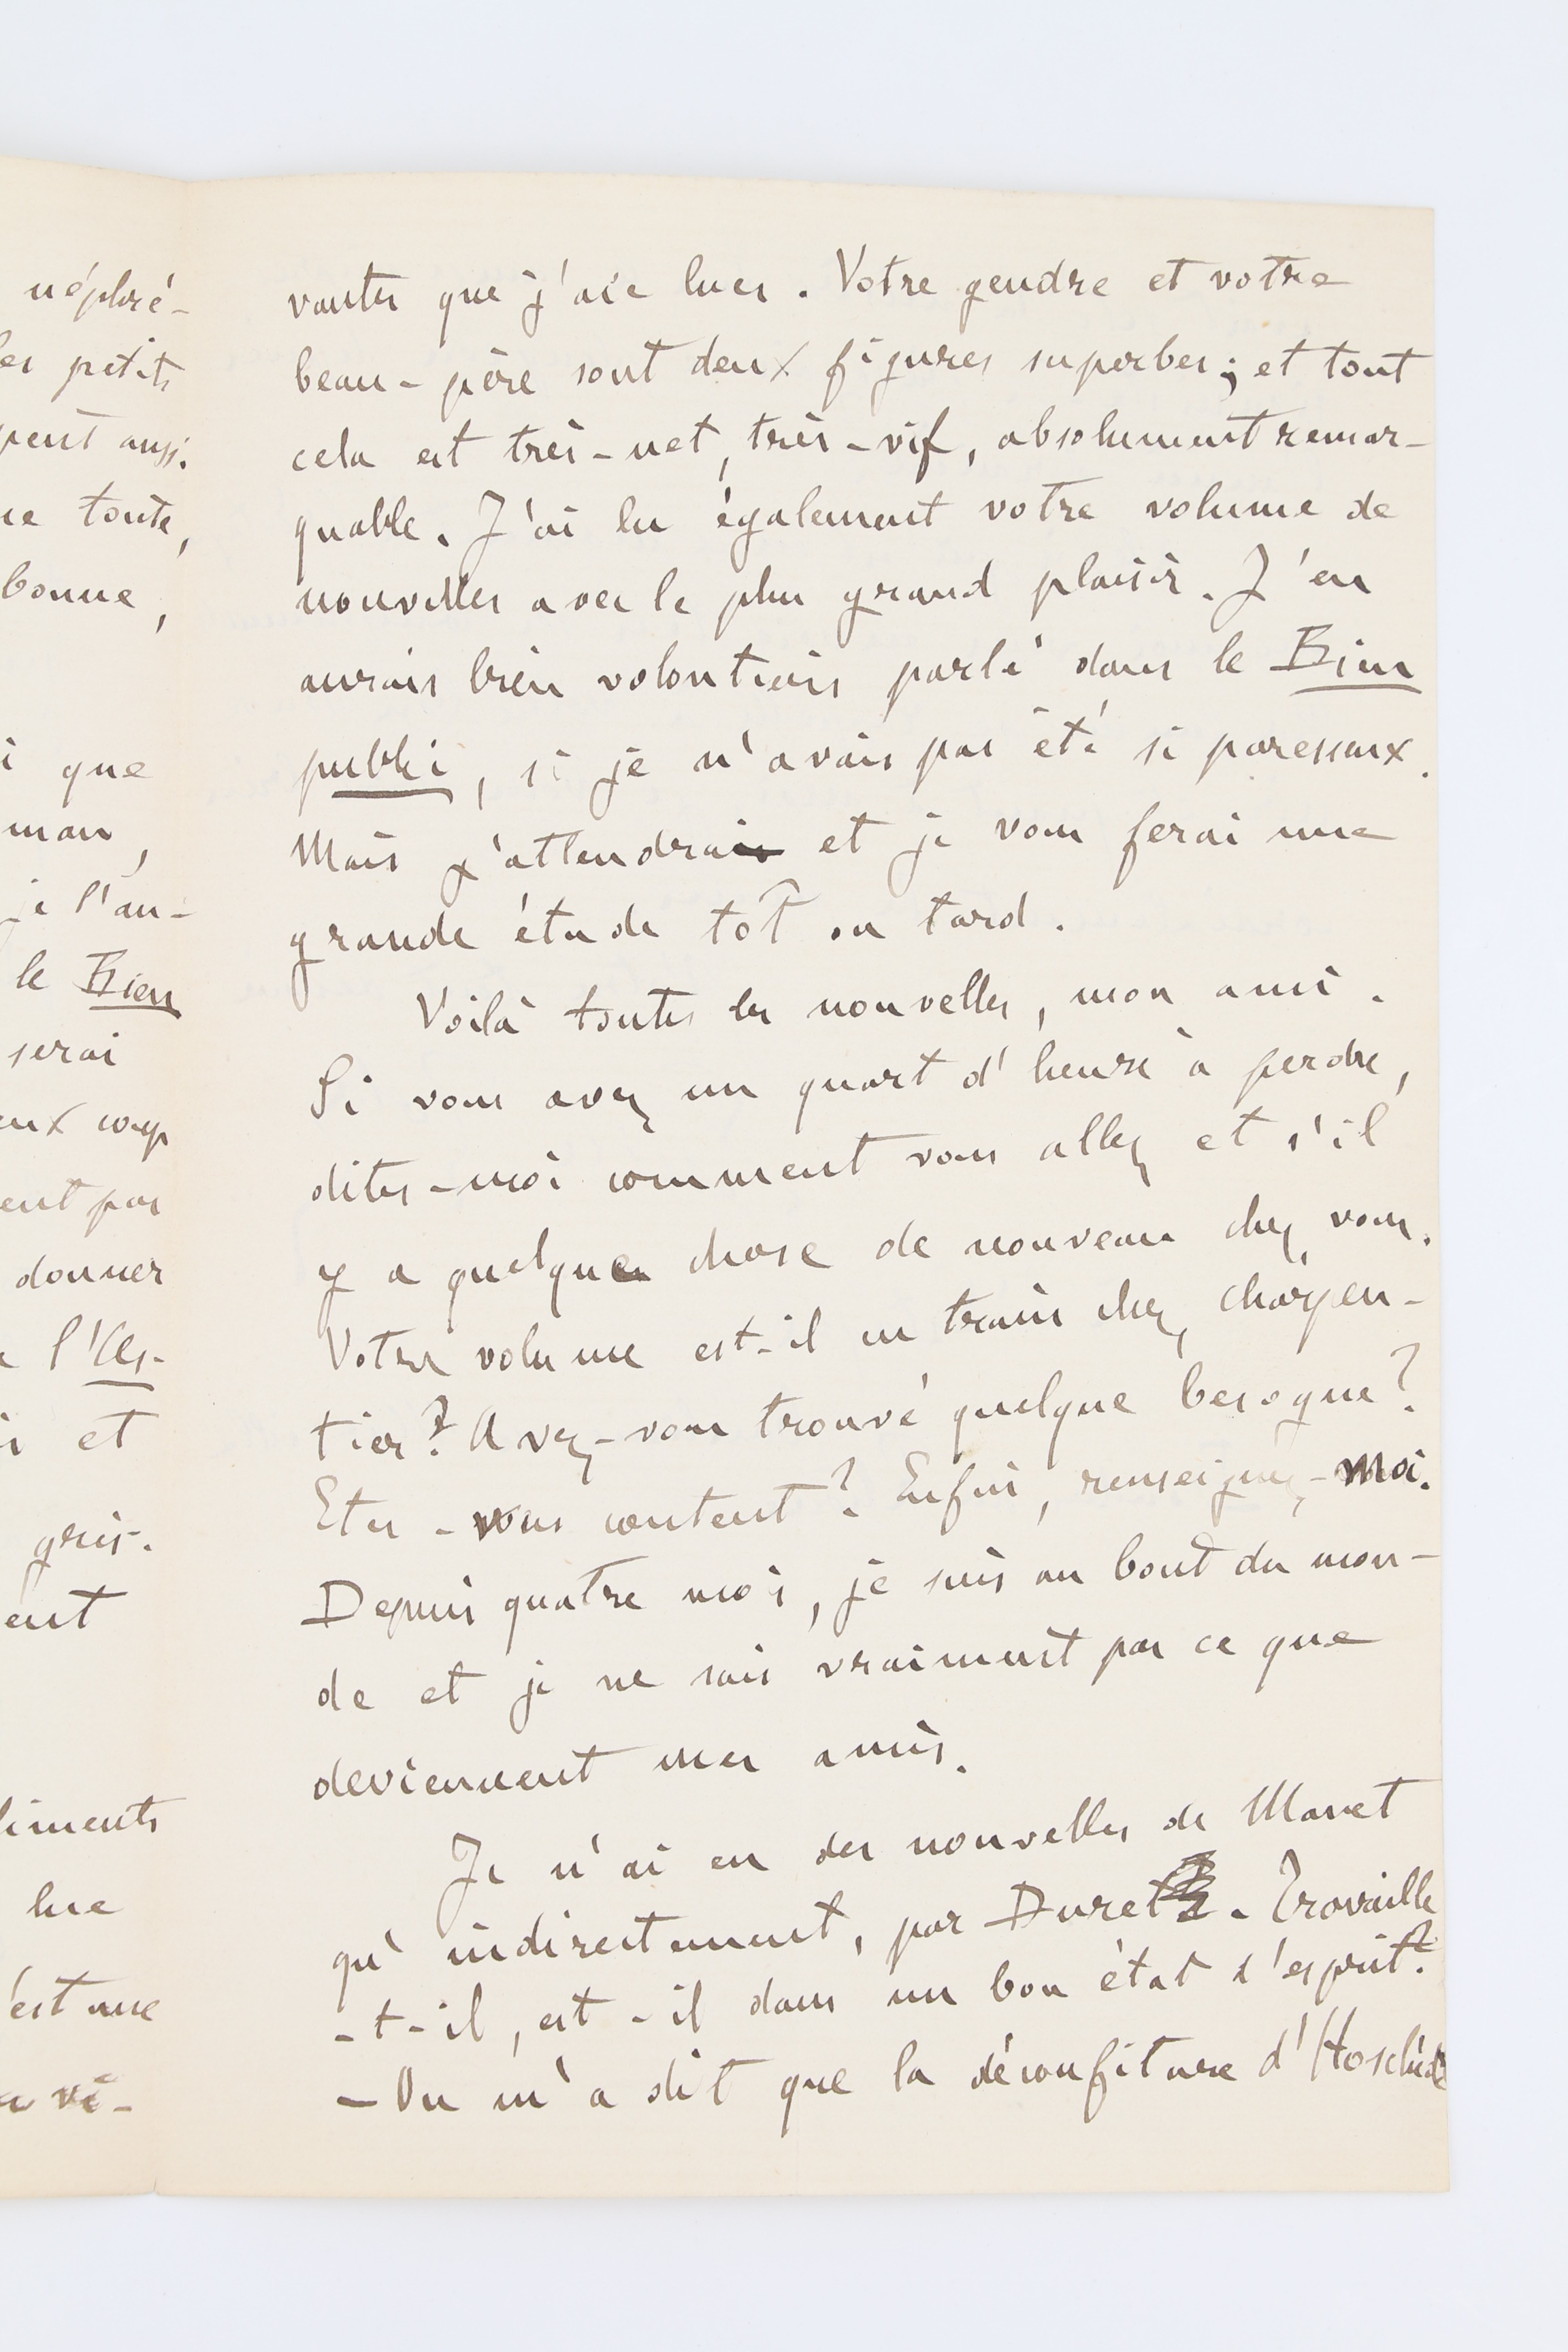 népliré-
les petits
peut aussi
ne toute,
bonne,
i que
man,
je l'an-
le Bien
serai
eux coup
ent pas
donner
l'Es-
i et
gris.
ent
liments
lue
'est une
vi-
vantes que j'aie lues. Votre gendre et votre
beau-père sont deux figures superbes; et tout
cela est très-net, très-vif, absolument remar-
quable. J'ai lu également votre volume de
nouvelles avec le plus grand plaisir. J'en
aurais bien volontiers parlé dans le Bien
public, si je n'avais pas été si paresseux.
Mais j'attendrai et je vous ferai une
grande étude tôt ou tard.
Voilà toutes les nouvelles, mon ami.
Si vous avez un quart d'heure à perdre,
dites-moi comment vous allez et s'il
y a quelque chose de nouveau chez vous.
Votre volume est-il en train chez Charpen-
tier? Avez-vous trouvé quelque besogne?
Etes-vous content? Enfin, renseignez-moi.
Depuis quatre mois, je suis au bout du mon-
de et je ne sais vraiment pas ce que
deviennent mes amis.
Je n'ai eu des nouvelles de Manet
qu'indirectement, par Duret. Travaille
-t-il, est-il dans un bon état d'esprit?
-On m'a dit que la déconfiture d'Hoschedé